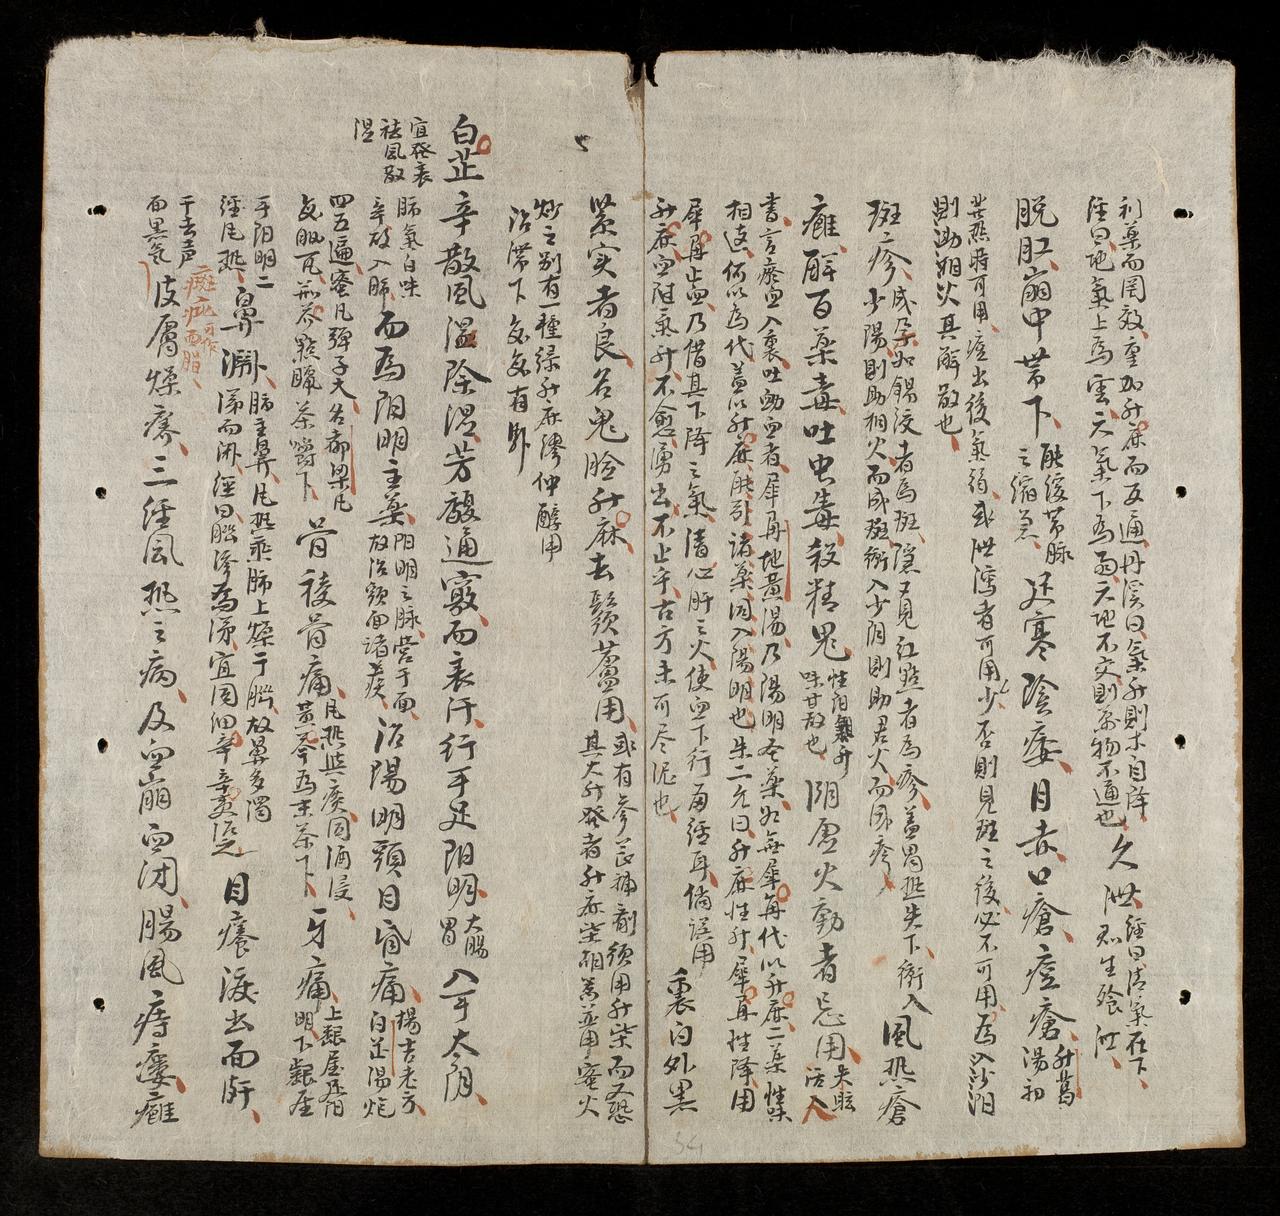 利藥而罔效重加升麻而反通丹溪曰氣升則水自降
經曰地氣上為雲天氣下為雨天地不交則萬物不通也
久泄
經曰清氣在下
則生飱泄
脫肛崩中帶下
能緩帶脉
之縮急
足寒陰痿目赤口瘡痘瘡
升葛
湯初
發熱時可用痘出後氣弱或泄瀉者可用少否則見斑之後必不可用為
則
其解散也
斑疹
成朶如錫文者為斑隱見紅點者為疹蓋胃熱失下衝入
少陽則助相火而成斑衝入少陰則助君火而成疹
風熱瘡
癰解百藥毒吐虫毒殺精鬼
性陽氣升
味甘故也
陰虛火動者忌用
朱肱
活人
書言瘀血入裏吐衂血者犀角地黃湯乃陽明聖藥如無犀角代以升麻二藥性味
相遠何以為代蓋以升麻能引諸藥同入陽明也朱二允曰升麻性升犀角性降用
犀角止血乃借其下降之氣清心肝之火使血下行歸經耳倘誤用
升麻血隨氣升不愈湧出不止乎古方未可尽泥也
裏白外黑
紧实者良名鬼臉升麻去鬚蘆用
或有參芪補劑須用升柴而又恐
其太升發者升麻柴胡並用蜜火
炒之別有一種綠升麻繆仲醇用
治滯下每每有驗
白芷
宜發表
祛風散
溫
辛散風溫除濕芳馥通竅而表汗行手足陽明
大腸
胃
入手太陰
肺氣白味
辛故入肺
而為陽明主藥
陽明之脉營于面
故治頭面諸疾
治陽明頭目昏痛
楊吉老方
白芷湯炮
四五遍蜜丸彈子大名都梁丸
每服一丸荊芥點臘茶嚼下
眉稜骨痛
凡熱與痰同酒浸
黃芩為末茶下
牙痛
上齦属足陽
明下齦屬
手陽明二
經風熱
鼻淵
肺主鼻凡熱乘肺上爍于腦故鼻多濁
涕而淵經曰腦滲為涕宜同細辛辛夷治之
目癢淚出面皯
干去声
面黑氣
瘢疵
可作
面脂
皮膚燥癢三經風熱之病及血崩血閉腸風痔瘻癰